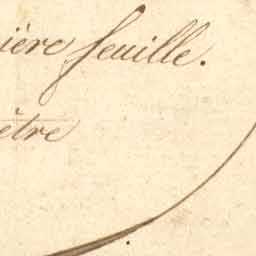 ière feuille.
être